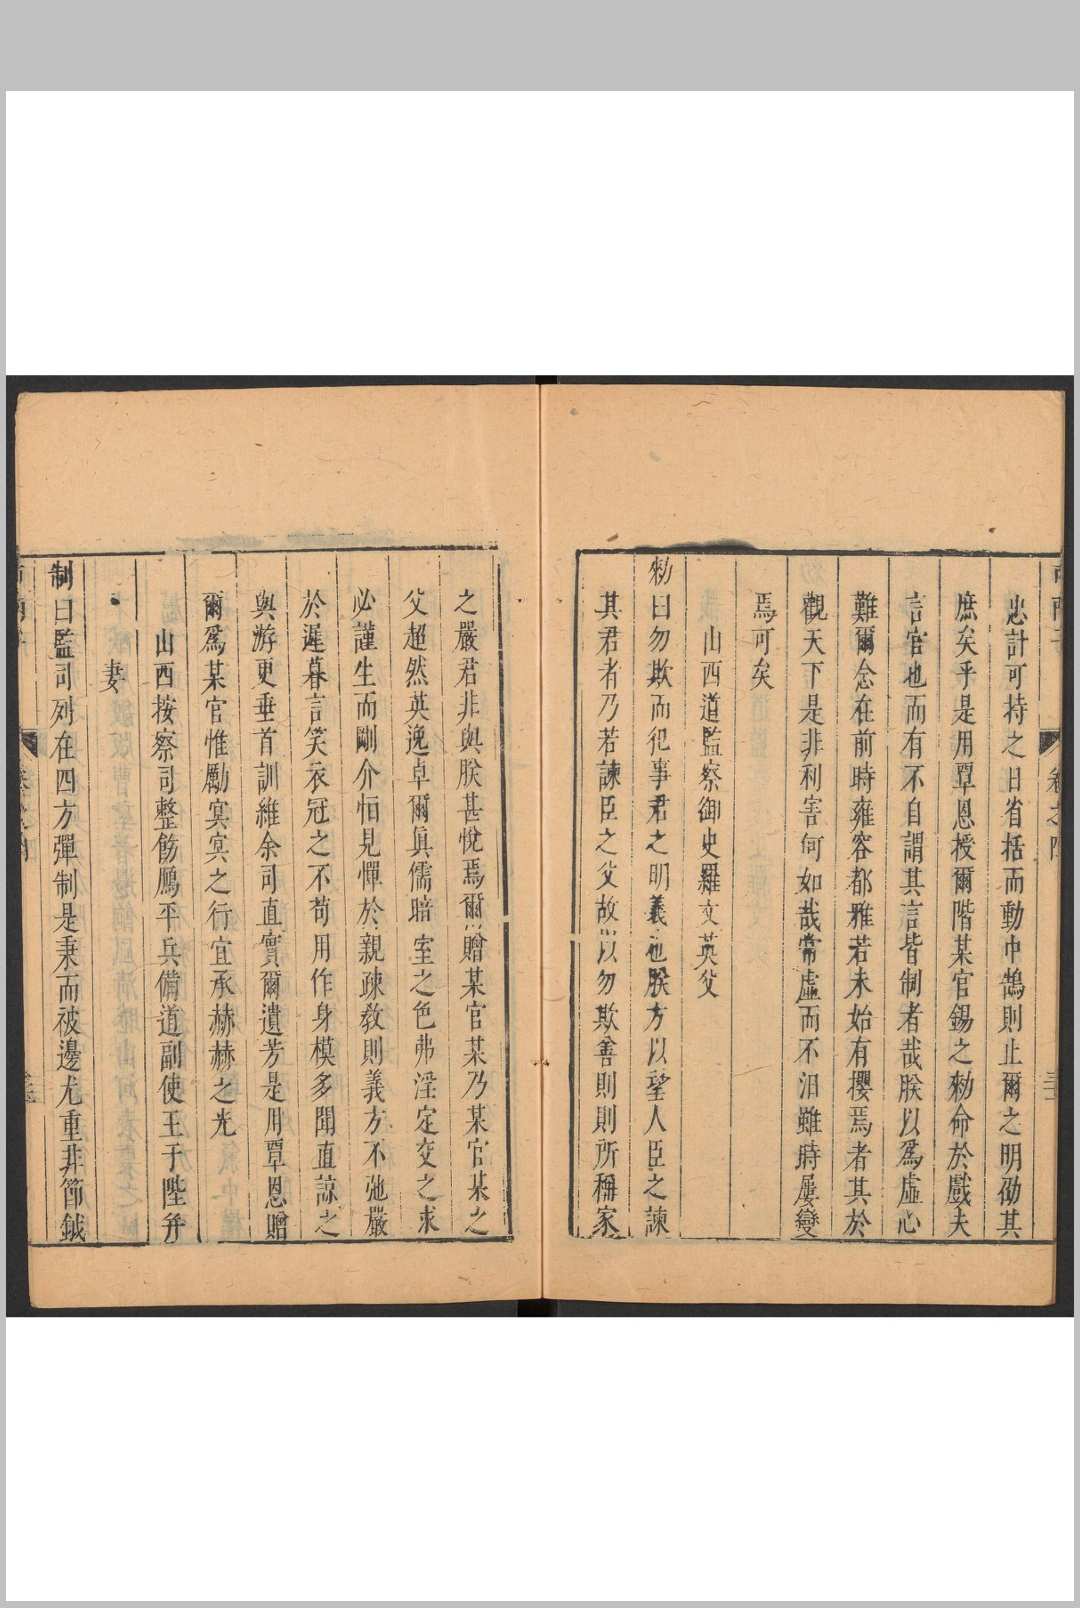 卷之四
忠計可持之日省括而動中鵠則止爾之明勗其
庶矣乎是用覃恩授爾階某官錫之勑命於戲夫
言官也而有不自謂其言皆制者哉朕以爲虛心
難爾念在前時雍容都雅若未始有攖焉者其於
觀天下是非利害何如哉常虛而不汩雖時屢變
焉可矣
山西道監察御史羅文英父
勑曰勿欺而犯事君之明義也朕方以望人臣之諫
其君者乃若諫臣之父故以勿欺善則則所稱家
之嚴君非與朕甚悅焉爾贈某官某乃某官某之
父超然英逸卓爾眞儒暗室之色弗淫定交之求
必謹生而剛介怕見憚於親疎敎則義方不弛嚴
於遲暮言笑衣冠之不苟用作身模多聞直諒之
與游更垂首訓維余司直實爾遺芳是用覃恩贈
爾爲某官惟勵冥冥之行宜承赫赫之光
山西按察司整飭鴈平兵備道副使王于陛幷
妻
制曰監司列在四方彈制是秉而被邊尤重非節鉞